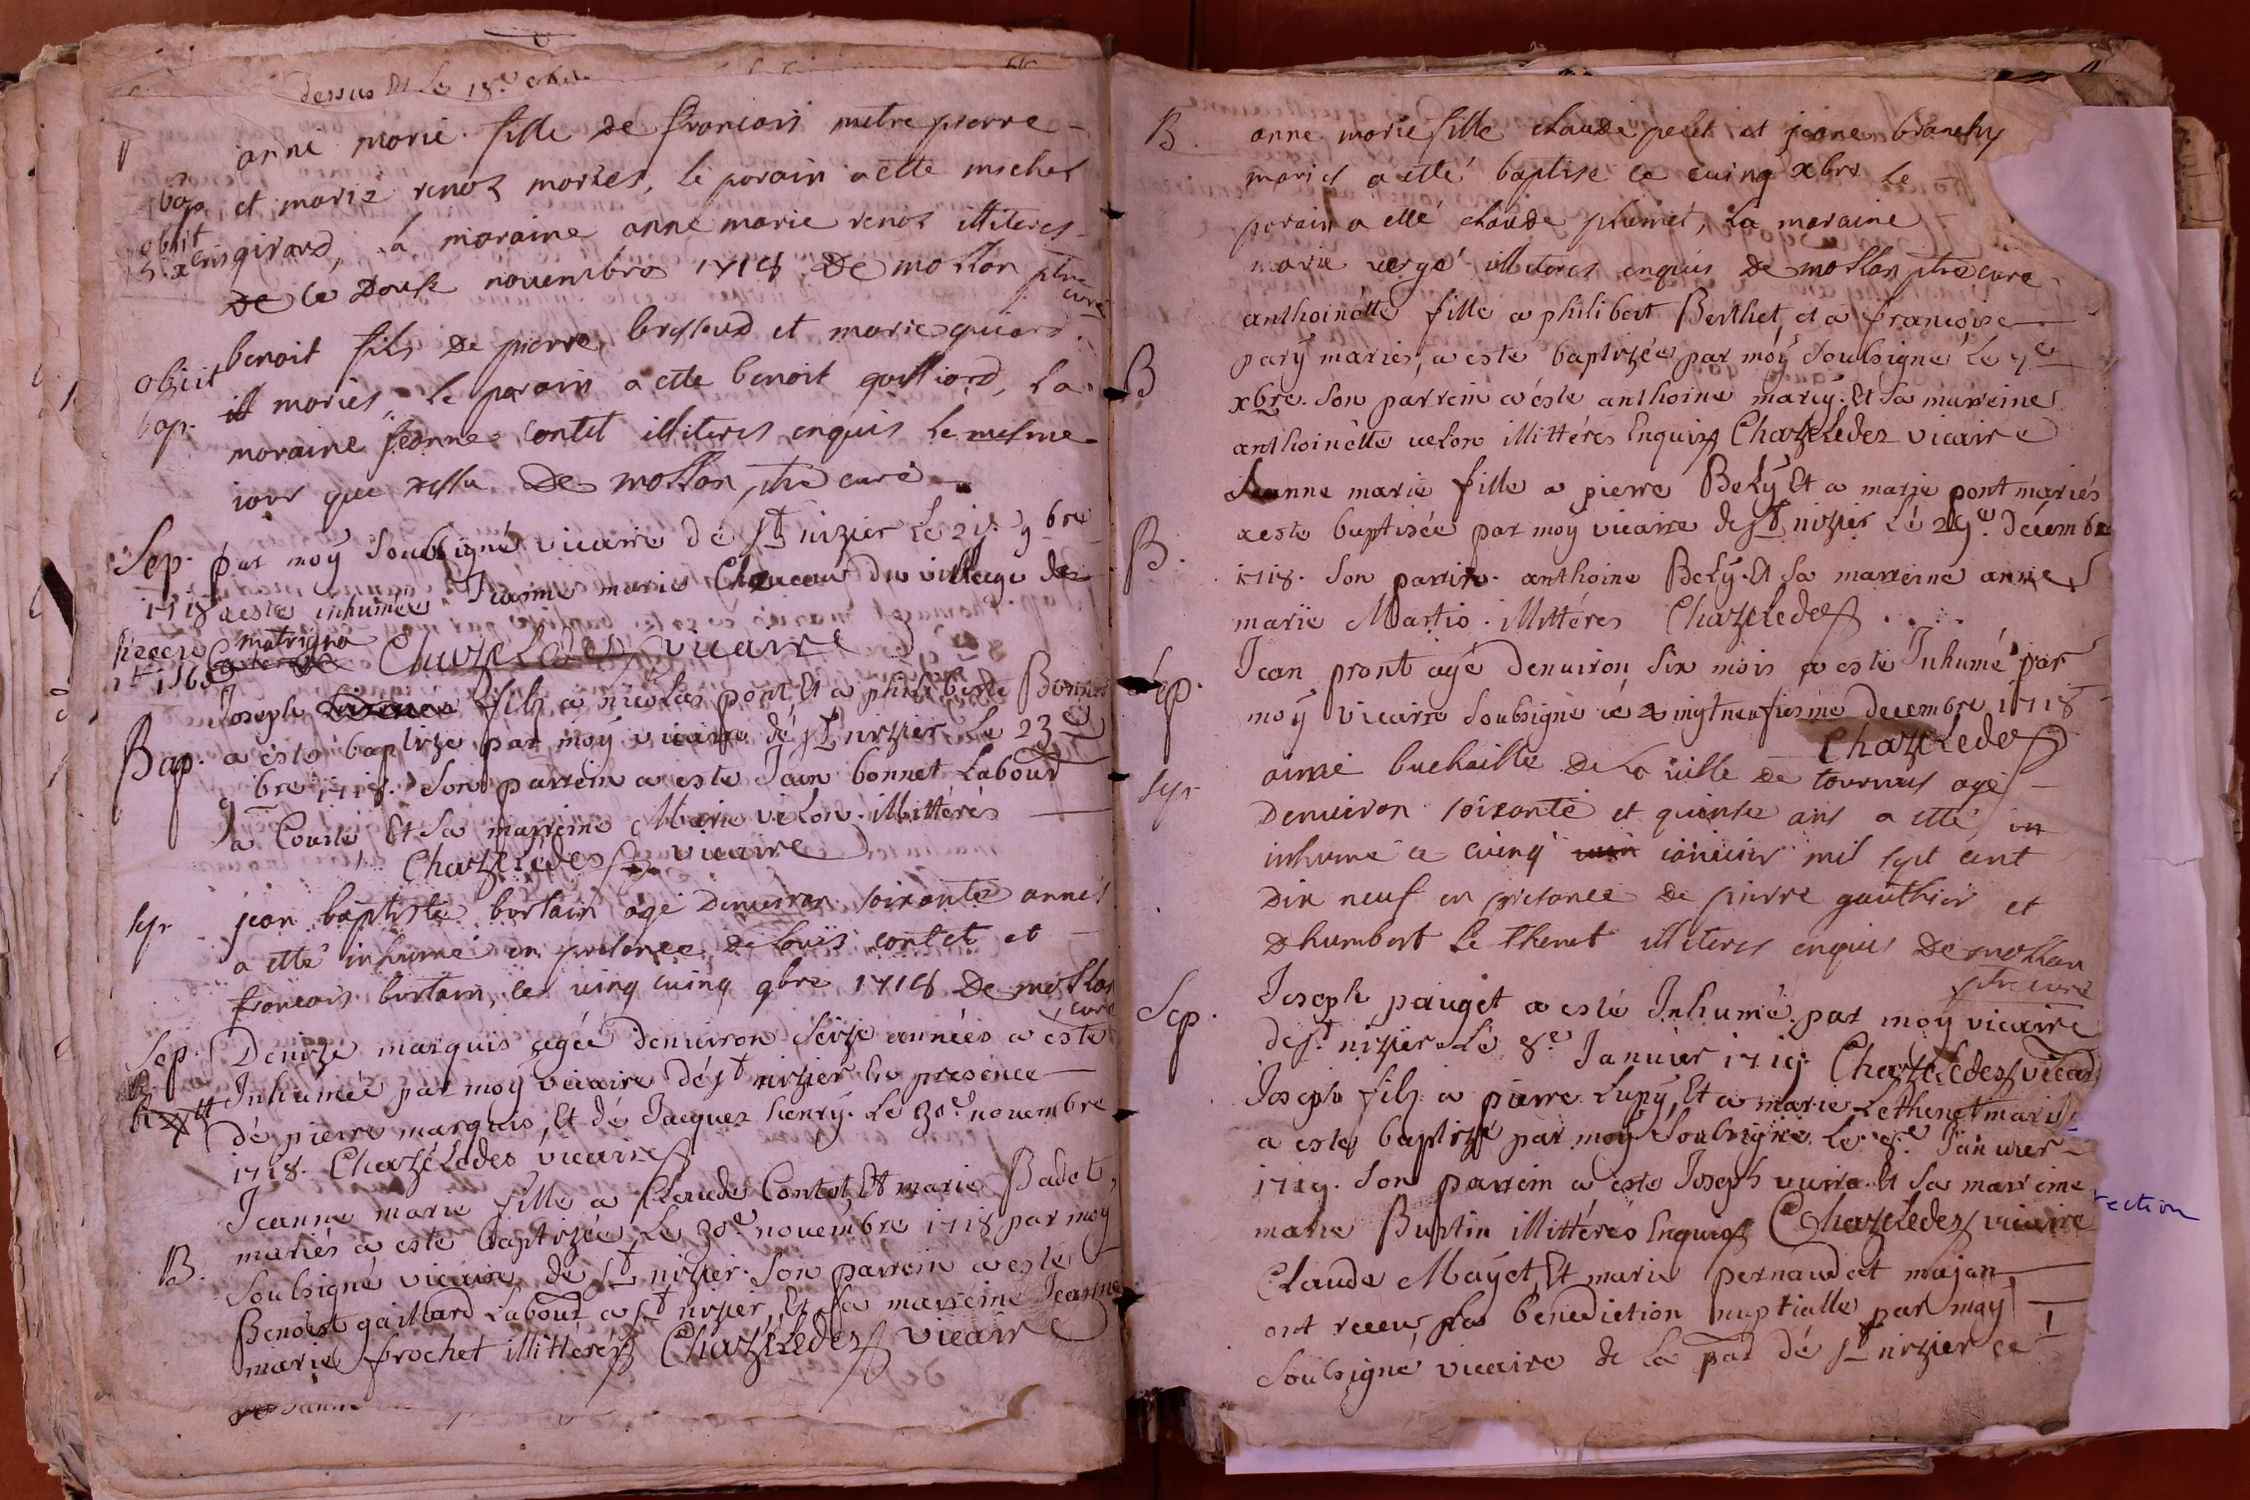 dessus Et Le 18e
anne marie fille de francois metrepierre
bap et marie renoz mariés, le parain a etté michel
obiit girard, la maraine anne marie renoz illiteres
De ce Douse novembre 1718 De mollon ptre curé
obiit benoit fils de pierre bressoud et marie guiard
bap. mariés le parain a etté benoit galliard, la
maraine jeanne contet illiteres enquis le mesme
iour que dessu De mollon ptre curé
Sep. par moÿ Soubsigné vicaire dé St nizier Le 21e 9bre
1718 aesté inhumée Jeanne marie Chanean du village de
matrigna
Chazeledes vicaire
Joseph fils a nicolas pont Et a philiberte Bonnet
Bap. a esté baptizé par moÿ vicaire dé St nizier Le 23e
9bre 1718. Son parrein a esté Jean bonnet Labour
a Courlé Et Sa marreine Marie velon. illittérés
Chazeledes vicaire
sepr jean baptiste bertain agé denuiron soixante annés
a etté inhumé en presence de Louis contet et
francois bertain, le uing cuinq 9bre 1718 De mollon curé
Sep. Denize marquis agéé denuiron Seize années a esté
Inhuméé par moÿ vicaire Dé St nizier En presence
dé pierre marquis, Et dé Jacques henrÿ. Le 30e novembre
1718. Chazéledes vicaire
Jeanne marie fille a Claude Contet Et marie Badet,
mariés a esté Baptizéé Le 30e novémbre 1718 par moÿ
B. Soubsigné vicaire de St nizier. Son parrein a esté
Benoist gaillard Labour a St nizier, Et Sa marreine Jeanne
marie frochet illittérés Chazéledes vicaire
B. anne marie fille claude petit et jeane branchy
mariés a etté baptisé ce cuinq xbre le
parain a etté claude plumet, la maraine
marie vergé illiteres enquis De mollon ptre curé
anthoinétte fille a philibert Berthet, et a francoise
B parÿ mariés, a esté baptizéé par moÿ Soubsigné Le 7e
xbre. Son parrein a ésté anthoine marey. Et Sa marreine
anthoinétte velon illittérés Enquis Chazeledes vicaire
Jeanne marie fille a pierre Belÿ Et a marie pont mariés
B. aesté baptisée par moy vicaire de St nizier Lé 29e. Décembre
1718. Son parrin. anthoine Belÿ. Et Sa marreiné anne
marie Martio. illittérés Chazeledes
Sép. Jean pront agé denuiron Six mois a esté Inhumé par
moÿ Vicaire Soubsigné cé vingtneufiesme Decembre 1718
Chazeledes
sepr aimé buchaille De La uille de tournus agé
Denuiron soixante et quinse ans a etté en
inhumé ce cuinq ianuier mil sept cent
Dix neuf en presance de pierre gauthier et
Dhumbert Le thenet illiteres enquis De mollon
ptre curé
Sep. Joseph pauget a esté Inhumé par moÿ vicaire
de St nizier Lé 8e Januier 1719 Chazeledes vicaire
Joseph fils a pierre Lupÿ Et a marie Lethenet mariés
a esté baptizé par moÿ Soubsigné Le 8e Januier
1719. Son parrein a esté Joseph Et Sa marreine
marie Buptin illittérés Enquis Chazeledes vicaire
Claude Mayet Et marie pernaudat majan
ont receu La bénediction nuptialle par moÿ
Soubsigné vicaire de La par dé St nizier ce
rection